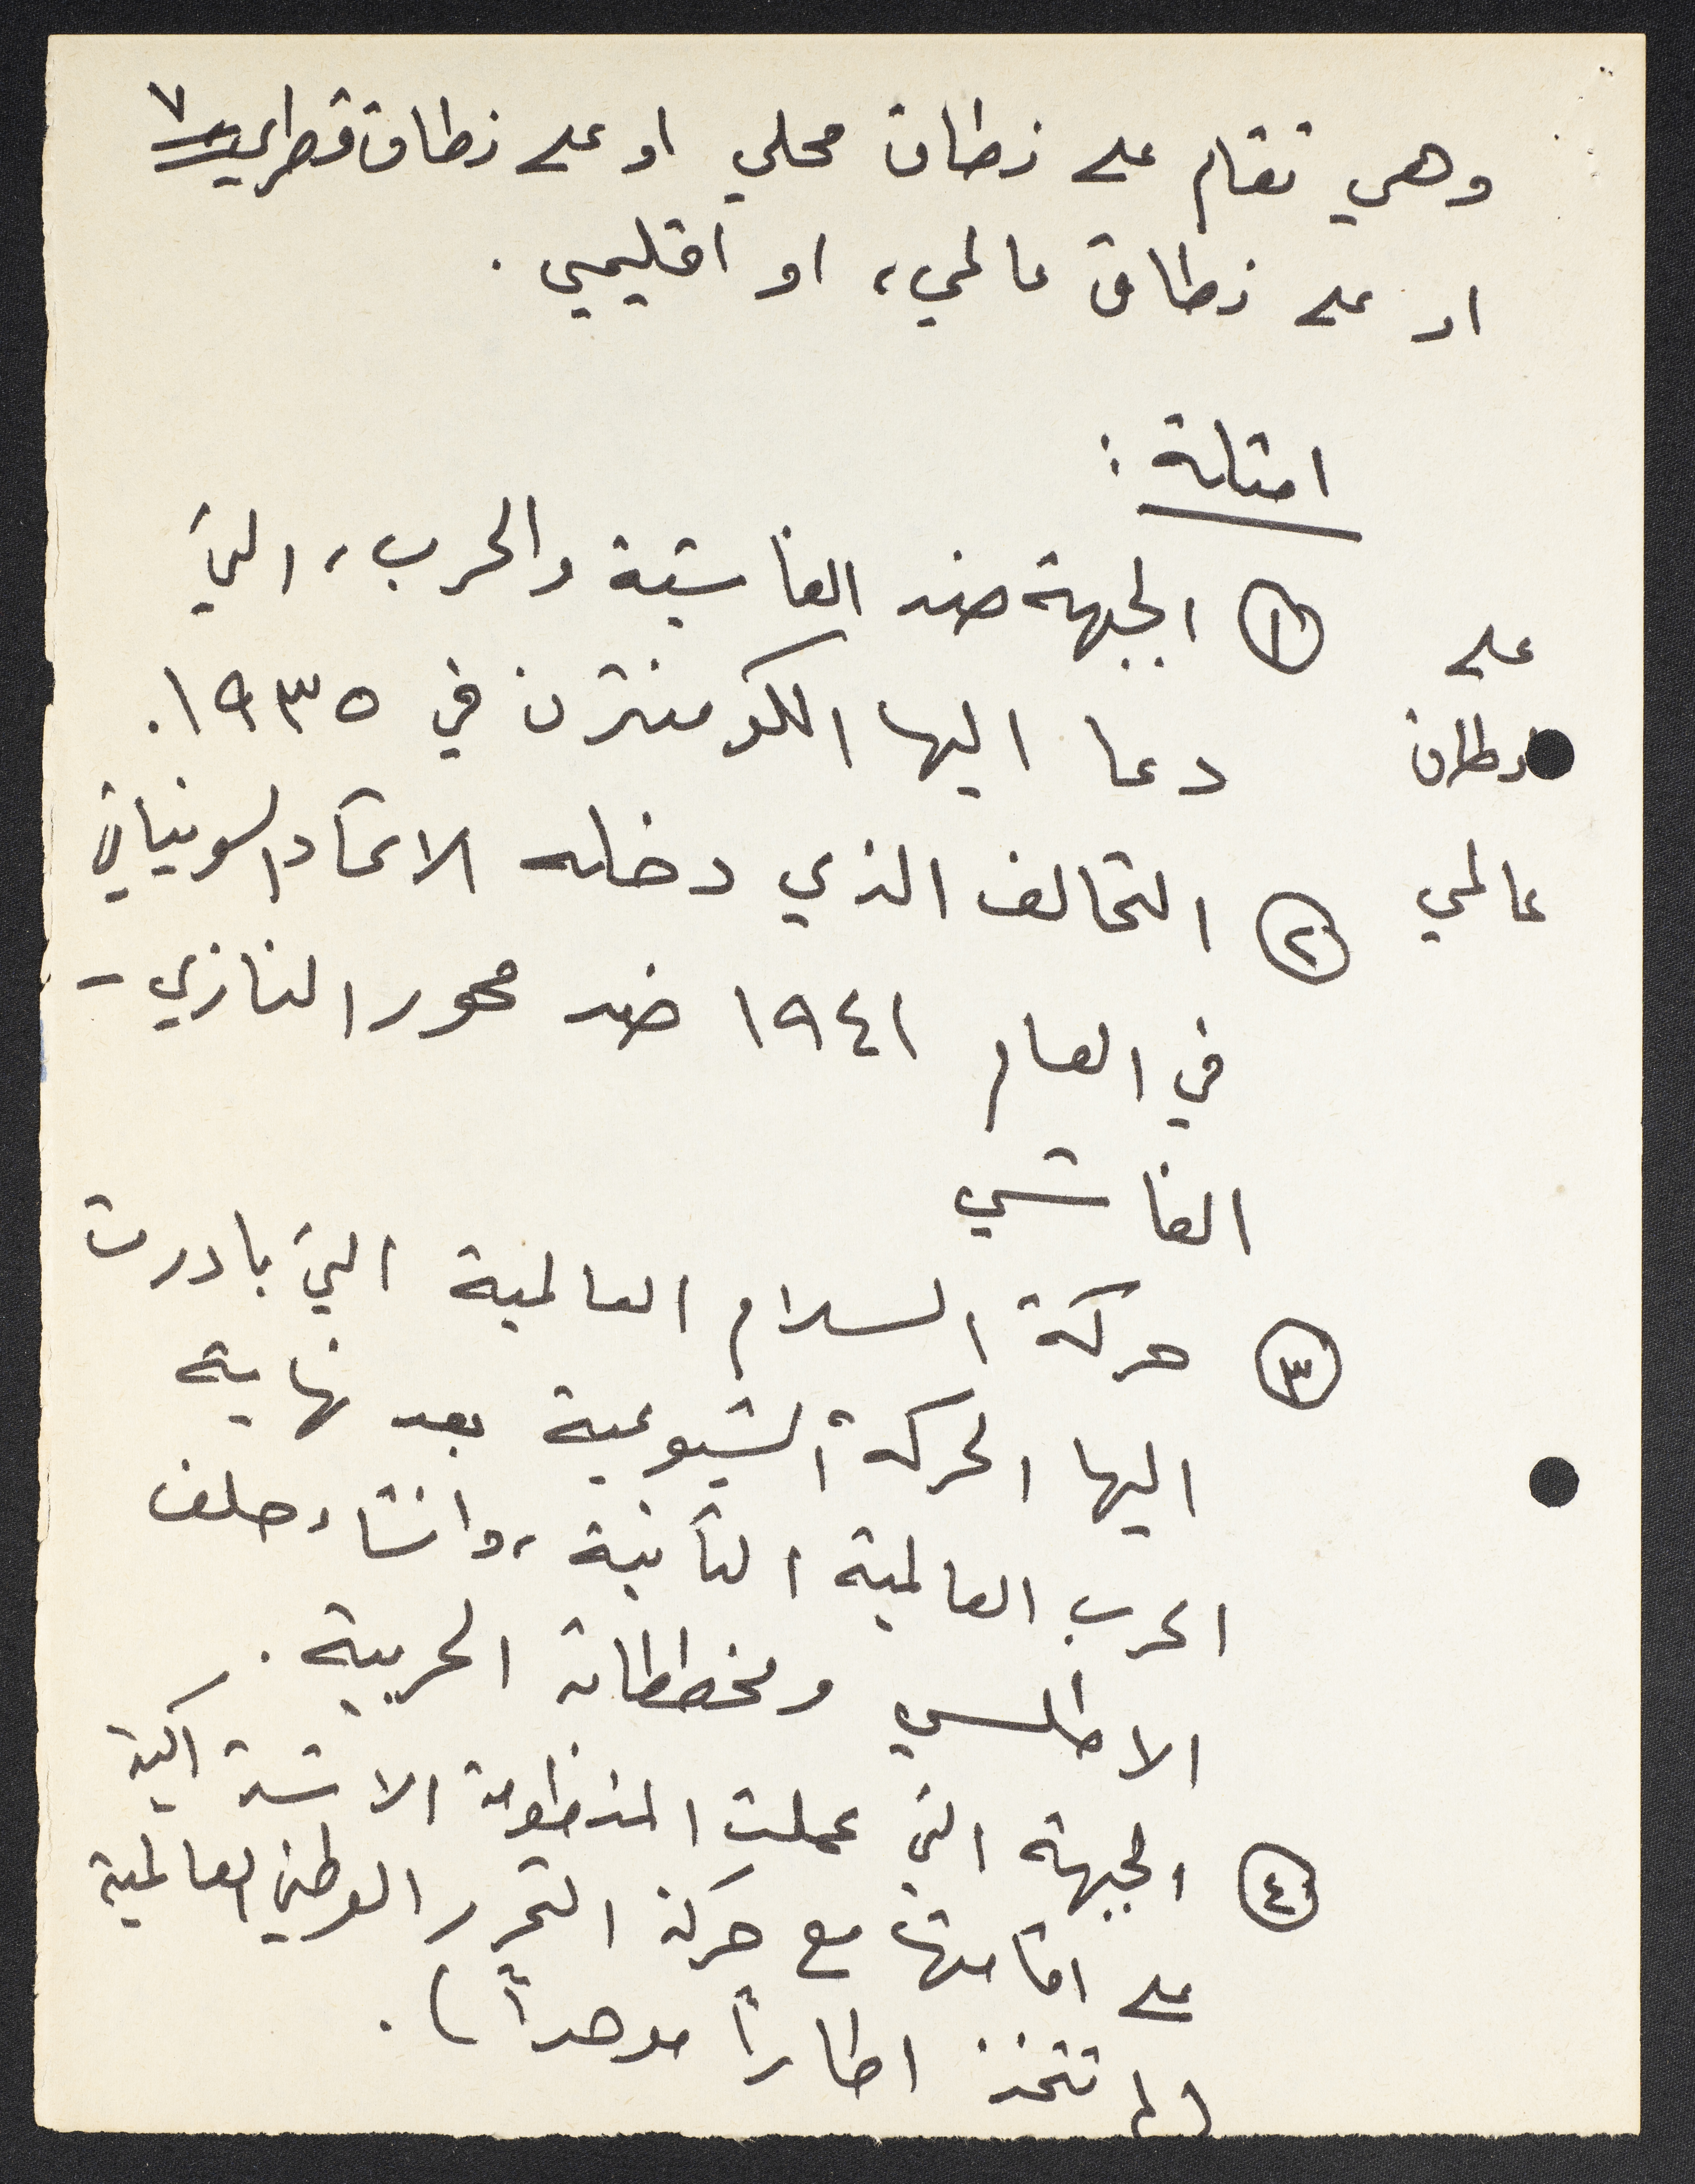 ٧
وهي تقام على نطاق محلي او على نطاق قطري
او على نطاق عالمي، او اقليمي.
امثلة:
على نطاق عالمي
① الجبهة ضد الفاشية والحرب، التي
دعا اليها الكومنترن في ١٩٣٥.
② التحالف الذي دخله الاتحاد السوفياتي
في العام ١٩٤١ ضد محور النازي -
الفاشي
③ حركة السلام العالمية التي بادرت
اليها الحركة الشيوعية بعد نهاية
الحرب العالمية الثانية، وانشاء حلف
الاطلسي ومخططاته الحربية.
④ الجبهة التي عملت المنظومة الاشتراكية
على اقامتها مع حركة التحرر الوطني العالمية
(لم تتخذ اطاراً موحداً).